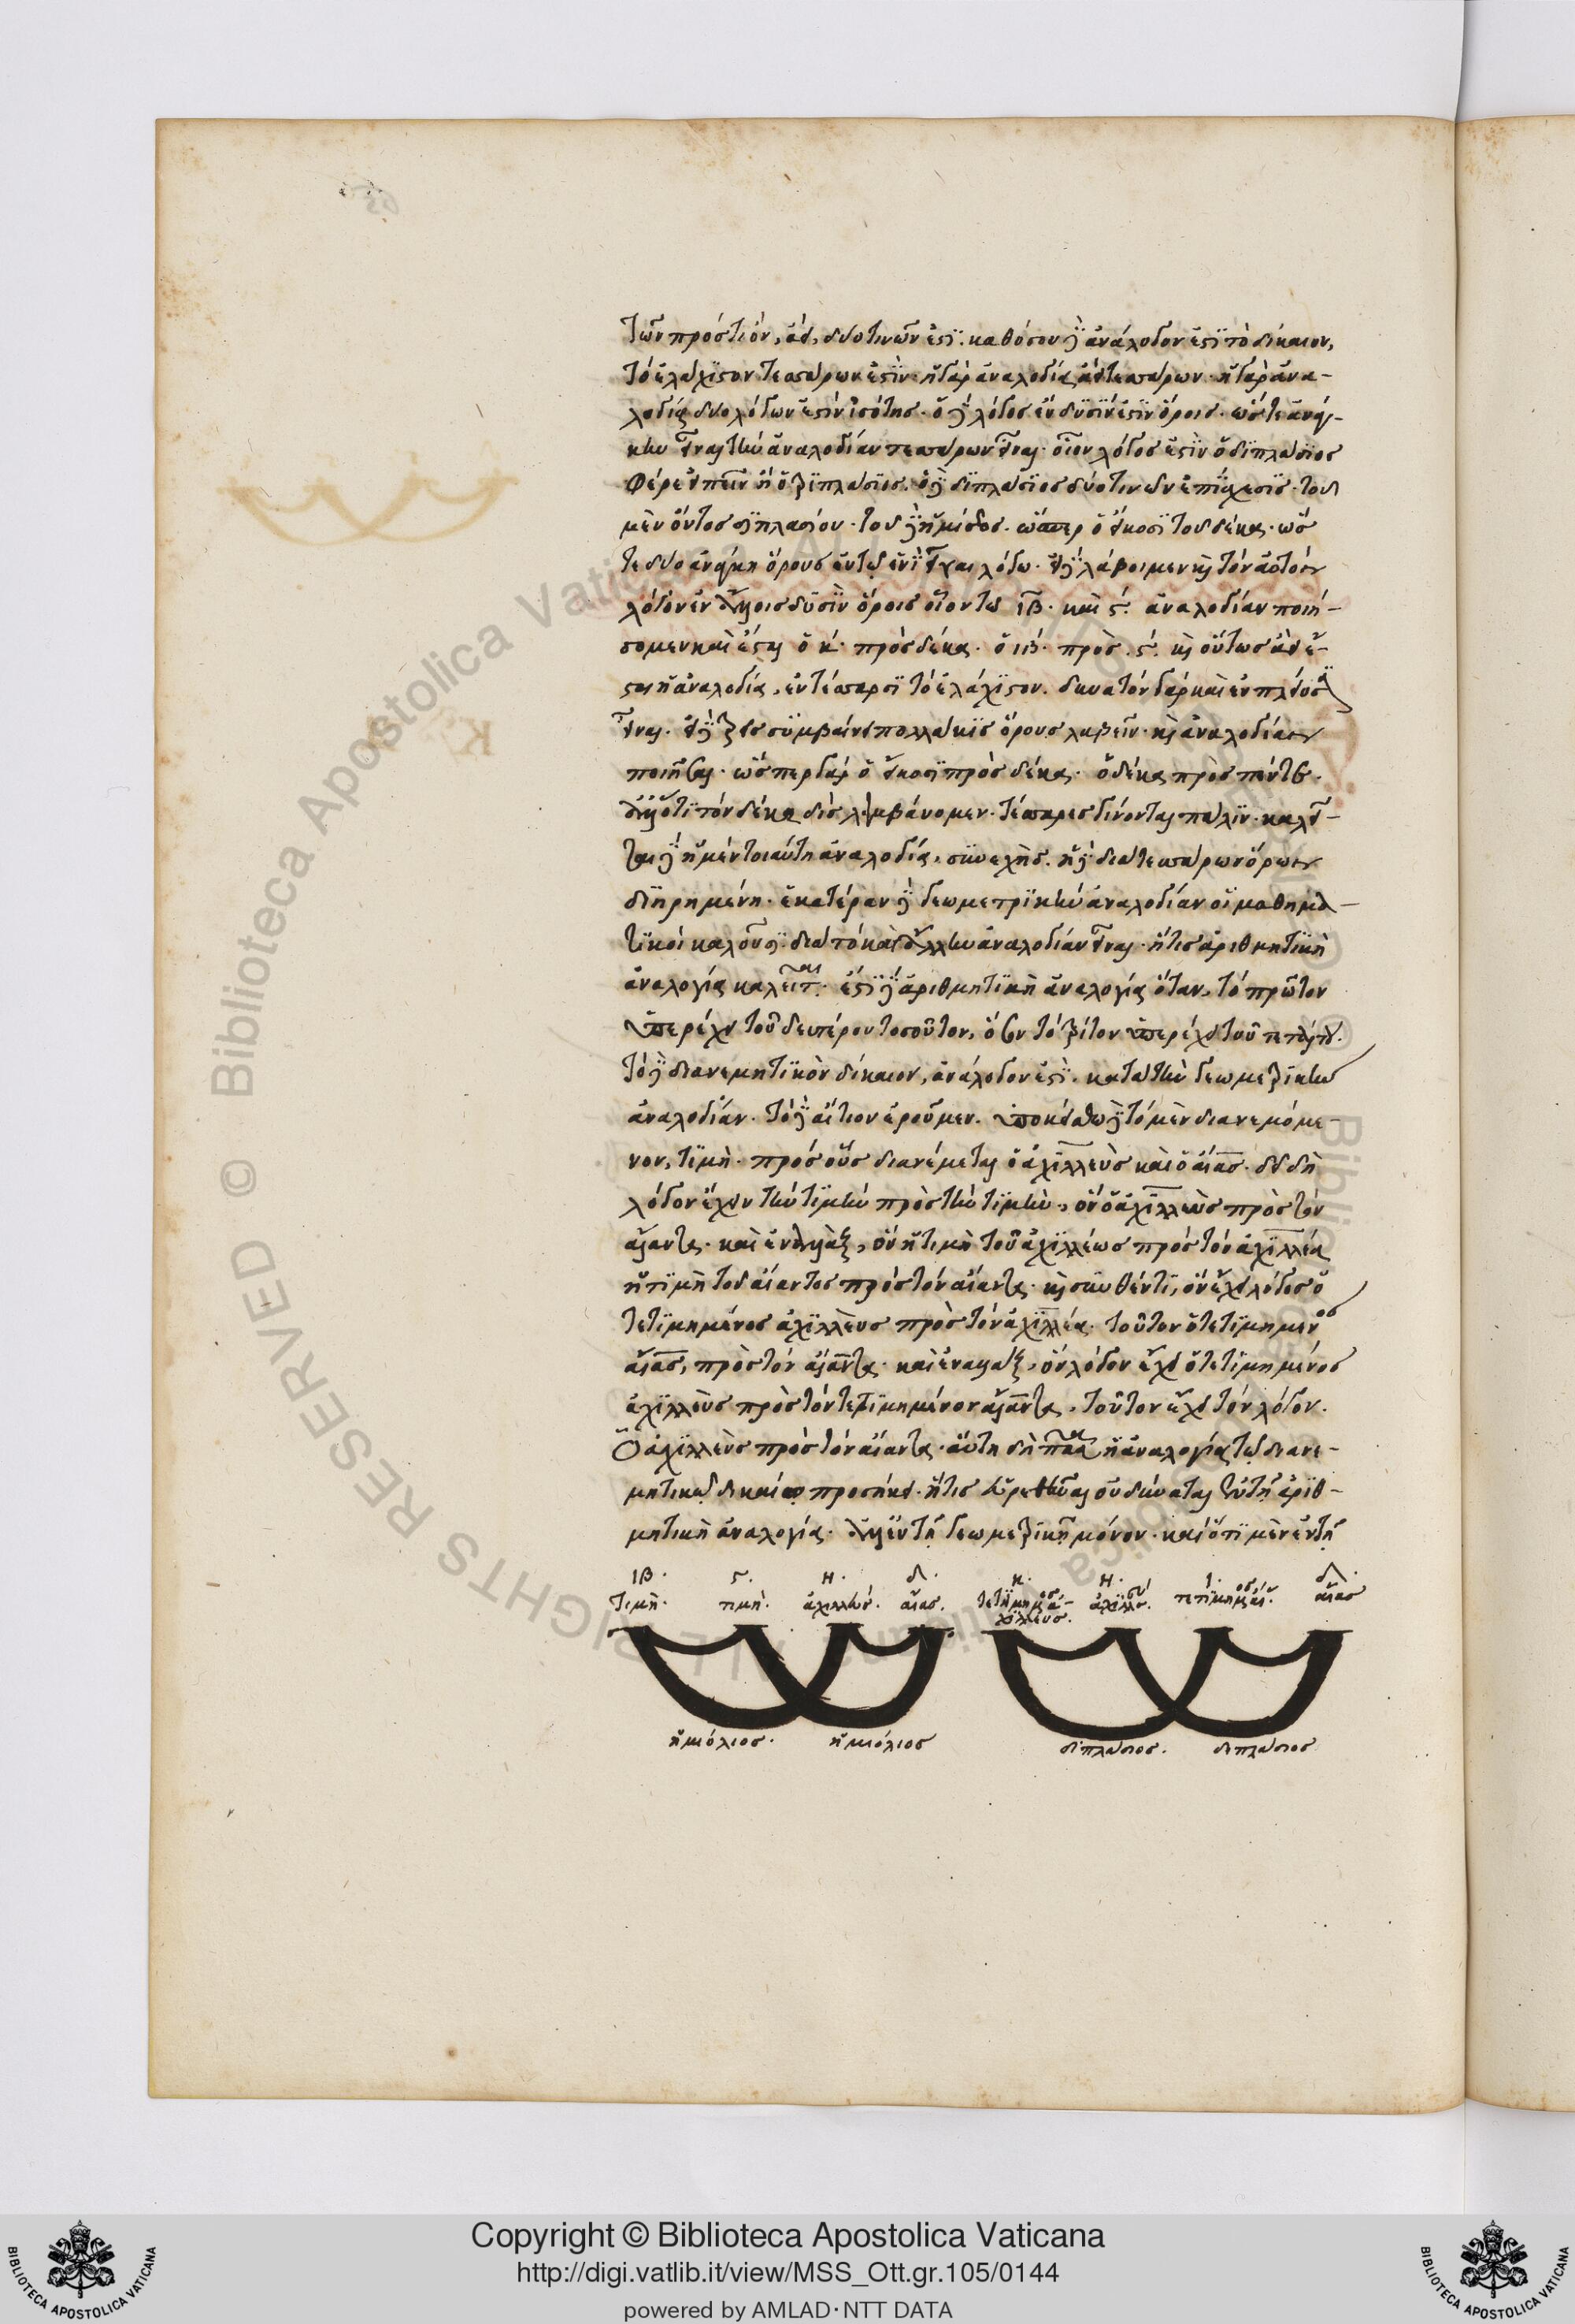 τῶν πρός τι ὄν, ἀεὶ, δυο τινῶν ἐστὶ. καθόσον δὲ ἀνάλογον ἐστὶ τὸ δίκαιον,
τὸ ἐλάχιστον τεσσάρων ἐστὶν. ἡ γὰρ ἀναλογία τεσσάρων. ἡ γὰρ ἀνα-
λογία δυο λόγων ἐστὶν ἰσότης. ὁ δὲ λόγος ἐν δυσὶν ἐστὶν ὅροις. ὥστε ἀνάγ-
κην εἶναι τὴν ἀναλογίαν τεσσάρων εἶναι. οἷον λόγος ἐστὶν ὁ διπλάσιος
φέρε εἰπεῖν ἢ ὁ τριπλάσιος. ὁ δὲ διπλάσιος δύο τινῶν ἐπίσχεσις. τοῦ
μὲν ὄντος διπλασίου. τοῦ δὲ ἡμίσεος. ὥσπερ ὁ εἴκοσι τοῦ δέκα. ὥσ
τε δυο ἀνάγκη ὅρους ἐν τῷ ἑνὶ εἶναι λόγω. εἰ δὲ λάβοιμεν καὶ τὸν αὐτὸν
λόγον ἐν ἄλλοις δυσὶν ὅροις οἷον τῶ ιβ. καὶ ϛ. ἀναλογίαν ποιή-
σομεν καὶ ἔσται ὁ κ. πρὸς δέκα. ὁ ιβ. πρὸς ϛ. καὶ οὕτως ἀεὶ ἔ-
σται ἡ ἀναλογία, ἐν τέσσαρσι τὸ ἐλάχιστον. δυνατὸν γὰρ καὶ ἐν πλείοσιν
εἶναι. εἰ δὲ τρεῖς συμβαίνει πολλάκις ὅρους λαβεῖν. καὶ ἀναλογίαν
ποιῆσαι. ὥσπερ γὰρ ὁ εἴκοσι πρὸς δέκα. ὁ δέκα πρὸς πέντε.
ἀλλ' ὅτι τὸν δέκα δὶς λαμβάνομεν. τέσσαρες γίνονται πάλιν. καλεῖ-
ται δὲ ἡ μὲν τοιαύτη ἀναλογία, συνεχὴς. ἡ δὲ διὰ τεσσάρων ὅρων
διῃρημένη. ἑκατέραν δὲ γεωμετρικὴν ἀναλογίαν οἱ μαθημα-
τικοὶ καλοῦσι διὰ τὸ καὶ ἄλλην ἀναλογίαν εἶναι. ἥτις ἀριθμητικὴ
ἀναλογία καλεῖται. ἐστὶ δὲ ἀριθμητικὴ ἀναλογία ὅταν, τὸ πρῶτον
ὑπερέχει τοῦ δευτέρου τοσοῦτον, ὅσον τὸ τρίτον ὑπερέχει τοῦ τετάρτου.
τὸ δὲ διανεμητικὸν δίκαιον, ἀνάλογον ἐστὶ. κατὰ τὴν γεωμετρικὴν
ἀναλογίαν. τὸ δὲ αἴτιον ἐροῦμεν. ὑποκείσθω δὲ τὸ μὲν διανεμόμε-
νον, τιμὴ. πρὸς οὓς διανέμεται ὁ ἀχιλλεὺς καὶ ὁ αἴας. δεῖ δὴ
λόγον ἔχειν τὴν τιμὴν πρὸς τὴν τιμὴν, ὃν ὁ ἀχιλλεὺς πρὸς τὸν
αἴαντα. καὶ ἐναλλὰξ, ὃν ἡ τιμὴ τοῦ ἀχιλλέως πρὸς τὸν ἀχιλλέα
ἡ τιμὴ τοῦ αἴαντος πρὸς τὸν αἴαντα. καὶ συνθέντι, ὃν ἔχει λόγος ὁ
τετιμημένος ἀχιλλεὺς πρὸς τὸν ἀχιλλέα. τοῦτον ὁ τετιμημένος
αἴας, πρὸς τὸν αἴαντα. καὶ ἐναλλὰξ, ὃν λόγον ἔχει ὁ τετιμημένος
ἀχιλλεὺς πρὸς τὸν τετιμημένον αἴαντα, τοῦτον ἔχει τὸν λόγον.
Ὁ ἀχιλλεὺς πρὸς τὸν αἴαντα. αὕτη δὴ πᾶσα ἡ ἀναλογία τῷ διανε-
μητικῷ δικαίῳ προσήκει. ἥτις εὑρεθῆναι οὐ δύναται ἐν τῇ ἀριθ-
μητικὴ ἀναλογία. ἀλλ' ἐν τῇ γεωμετρικῇ μόνον. καὶ ὅτι μὲν ἐν τῇ
ιβ. ϛ. η. δ. κ. η. ι. δ.
τιμὴ. τιμὴ. ἀχιλλεύς. αἴας. τετιμημένος ἀ- ἀχιλλεύς. τετιμημένος αἴ. αἴας
χιλλεύς.
ἡμιόλιος. ἡμιόλιος διπλάσιος. διπλάσιος
Copyright © Biblioteca Apostolica Vaticana
http://digi.vatlib.it/view/MSS_Ott.gr.105/0144
powered by AMLAD·NTT DATA